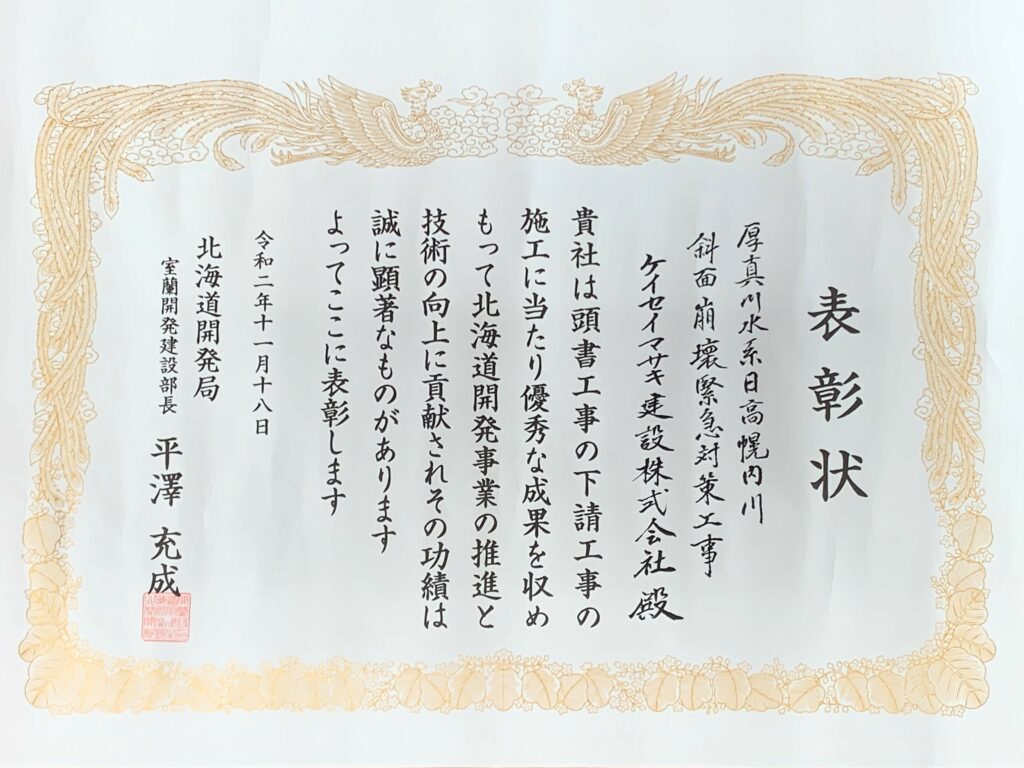 表彰状
厚真川水系日高幌内川
斜面崩壊緊急対策工事
ケイセイマサキ建設株式会社殿
貴社は頭書工事の下請工事の
施工に当たり優秀な成果を収め
もって北海道開発事業の推進と
技術の向上に貢献されその功績は
誠に顕著なものがあります
よってここに表彰します
令和二年十一月十八日
北海道開発局
室蘭開発建設部長 平澤 充成